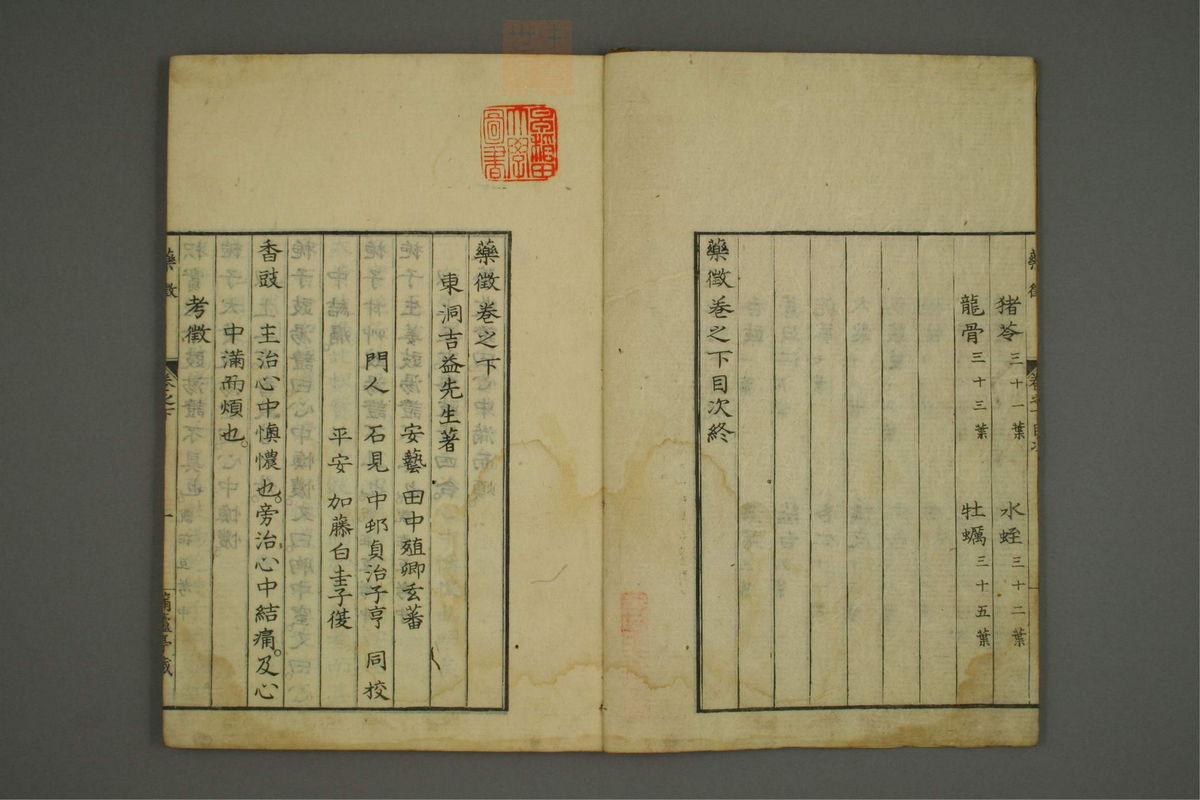 猪苓三十一葉 水蛭三十二葉
龍骨三十三葉 牡蠣三十五葉
藥徵卷之下目次終
藥徵卷之下
東洞吉益先生著
安藝 田中殖卿玄蕃
門人 石見 中邨貞治子亨 同挍
平安 加藤白圭子復
香豉 主治心中懊憹也。旁治心中結痛。及心
中滿而煩也。
考徵
藥徵
卷之下